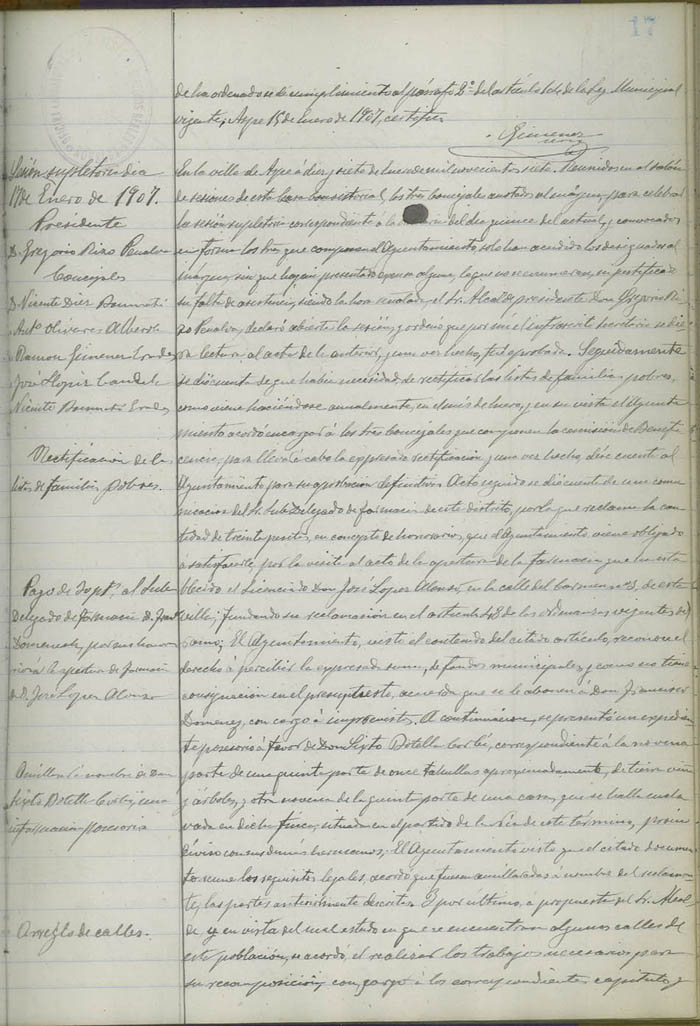 17
de ha ordenado se dé cumplimiento al párrafo 2º del artículo 104 de la Ley Municipal
vigente; Aspe 15 de Enero de 1907, certifico
Gimenez
Sesión supletoria dia
17 de Enero de 1907.
Presidente
D. Gregorio Rizo Penalva
Concejales
D. Vicente Diez
Antº Olivares Alberola
Ramon Gimenez
José López Candela
Vicente
Rectificación de las
listas de familias pobres.
Pago de 30 ptas. al Sub-
Delegado de farmacia D. Franº
Domenech, por sus hono-
rarios á la apertura de farmacia
de D. José López Alonso
Amillarar á nombre de Don
Sixto Botella Cerbí, una
información posesoria
Arreglo de calles.
En la villa de Aspe á diez y siete de Enero de mil novecientos siete. Reunidos en el salón
de sesiones de esta casa consistorial, los tres concejales anotados al márgen, para celebrar
la sesión supletoria correspondiente á la del dia quince del actual, y convocados
en forma los tres que componen el Ayuntamiento, solo han acudido los designados al
márgen, sin que hayan presentado escusa alguna, los que no enumeran, ni justificado
su falta de asistencia; siendo la hora señalada, el Sr. Alcalde presidente Don Gregorio Ri-
zo Penalva, declaró abierta la sesión, y ordenó que por mi el infrascrito Secretario se die-
ra lectura al acta de la anterior, y una vez hecho, fué aprobada. Seguidamente
se dió cuenta de que habia necesidad de rectificar las listas de familias pobres,
como viene haciéndose anualmente, en el mes de Enero, y en su vista el Ayunta-
miento acordó encargar á los tres Concejales que componen la comisión de Benefi-
cencia, para llevar á cabo la expresada rectificación y una vez hecha, dén cuenta al
Ayuntamiento para su aprobación definitiva. Acto seguido se dió cuenta de una comu-
nicacion del Sr. Subdelegado de farmacia de este distrito, por la que reclama la can-
tidad de treinta pesetas, en concepto de honorarios, que el Ayuntamiento viene obligado
á satisfacerle, por la visita al acto de la apertura de la farmacia que ha esta-
blecido el Licenciado Don José López Alonso, en la calle del Carmen nº 3, de esta
villa; fundando su reclamación en el artículo 48 de las ordenanzas vigentes del
ramo; El Ayuntamiento, visto el contenido del citado artículo, reconoce el
derecho á percibir la expresada suma, de fondos municipales, y como no tiene
consignación en el presupuesto, acuerda que se le abonen á Don Francisco
Domenech, con cargo á imprevistos. A continuación, se presentó un expedien-
te posesorio á favor de Don Sixto Botella Cerbí, correspondiente á la novena
parte de una quinta parte de once tahullas aproximadamente, de tierra viña
y árboles, y otra novena de la quinta parte de una casa, que se halla encla-
vada en dicha finca, situada en el partido de la de este término, proin-
diviso con sus demás hermanos; El Ayuntamiento visto que el citado documen-
to reune los requisitos legales, acordó que fueran amillaradas á nombre del reclaman-
te, las partes anteriormente descritas. Y por último, á propuesta del Sr. Alcal-
de, y en vista del mal estado en que se encuentran algunas calles de
esta población, se acordó el realizar los trabajos necesarios para
su recomposición, con cargo á los correspondientes capítulos y